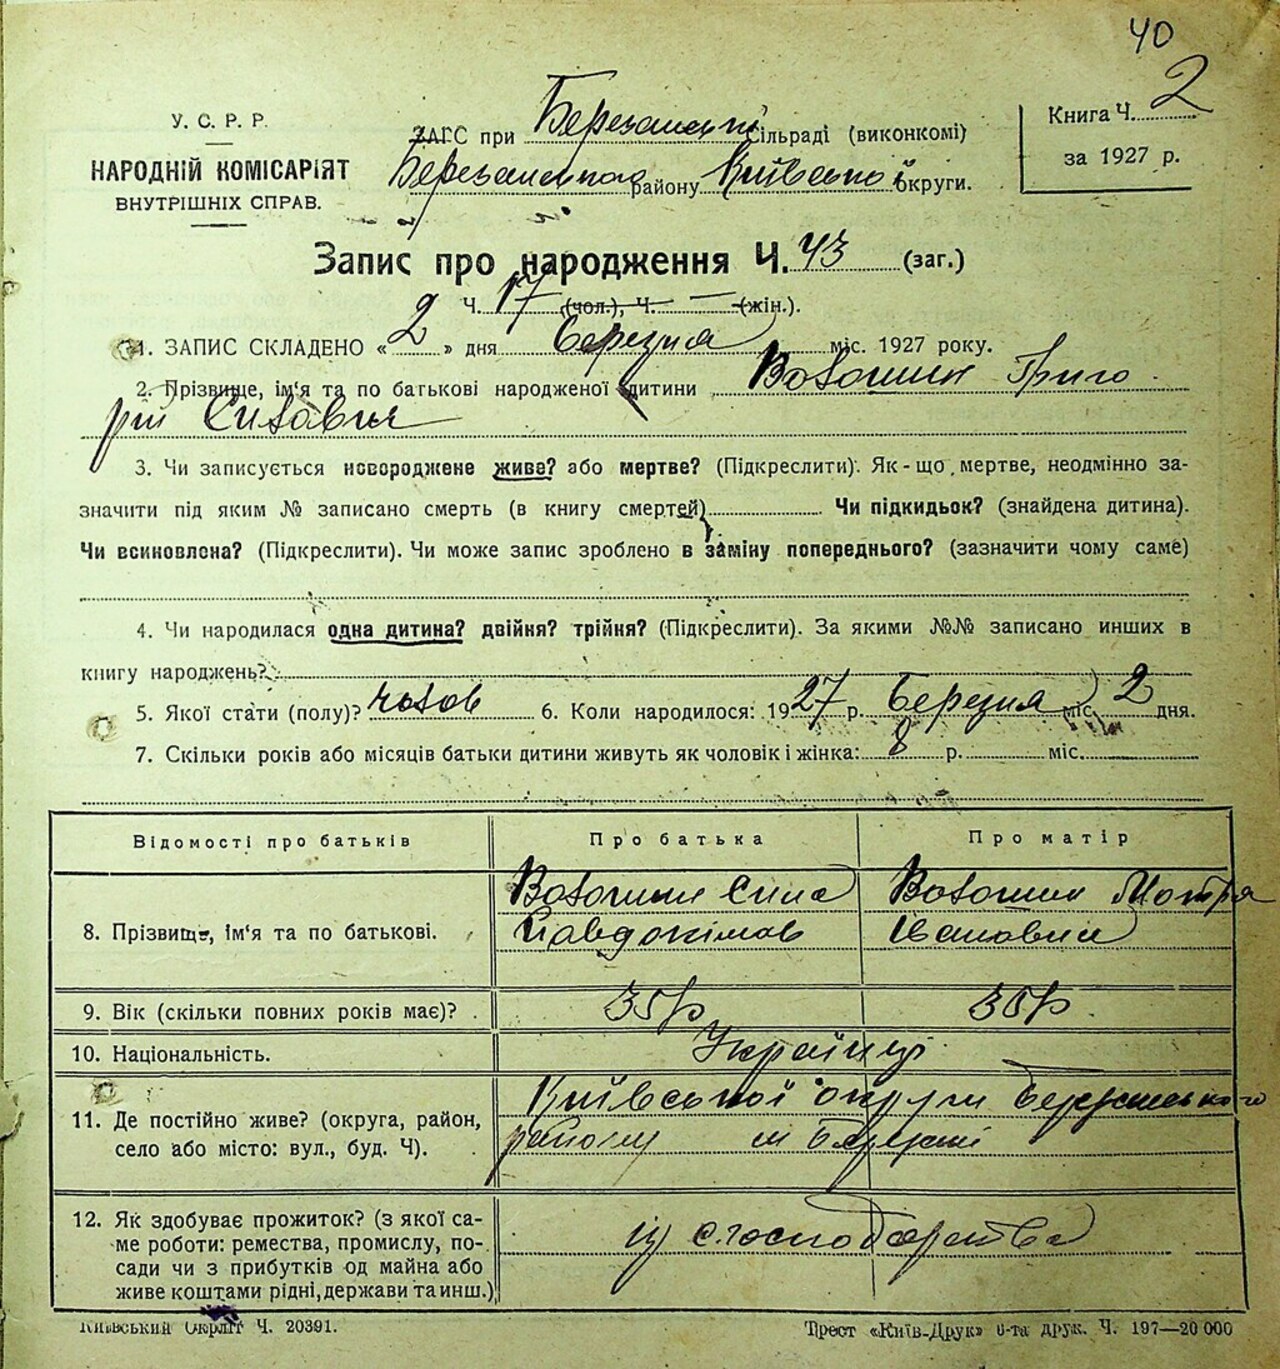 40
У. С. Р. Р.
НАРОДНІЙ КОМІСАРІЯТ
ВНУТРІШНІХ СПРАВ.
ЗАГС при Березанські Сільраді (виконкомі)
Березанського району Київської округи.
Книга Ч. 2
за 1927 р.
Запис про народження Ч. 43 (заг.)
Ч. 17 (чол.), Ч. — (жін.).
1. ЗАПИС СКЛАДЕНО « 2 » дня Березня міс. 1927 року.
2. Прізвище, ім'я та по батькові народженої дитини Волошин Григо
рій Силович
3. Чи записується новороджене живе? або мертве? (Підкреслити). Як-що мертве, неодмінно за-
значити під яким № записано смерть (в книгу смертей) Чи підкидьок? (знайдена дитина).
Чи всиновлена? (Підкреслити). Чи може запис зроблено в заміну попереднього? (зазначити чому саме)
4. Чи народилася одна дитина? двійня? трійня? (Підкреслити). За якими №№ записано инших в
книгу народжень?
5. Якої стати (полу)? чолов 6. Коли народилося: 1927 р. Березня міс. 2 дня.
7. Скільки років або місяців батьки дитини живуть як чоловік і жінка: 8 р. міс.
Відомості про батьків Про батька Про матір
8. Прізвище, ім'я та по батькові. Волошин Сила Явдокімов Волошин Мотря Івановна
9. Вік (скільки повних років має)? 35 р 30 р.
10. Національність. Українці
11. Де постійно живе? (округа, район,
село або місто: вул., буд. Ч).
Київської округи Березанського
району м Березані
12. Як здобуває прожиток? (з якої са-
ме роботи: ремества, промислу, по-
сади чи з прибутків од майна або
живе коштами рідні, держави та инш.)
із с.господарства
Київський Окрліт Ч. 20391.
Трест «Київ-Друк» 6-та друк. Ч. 197—20 000